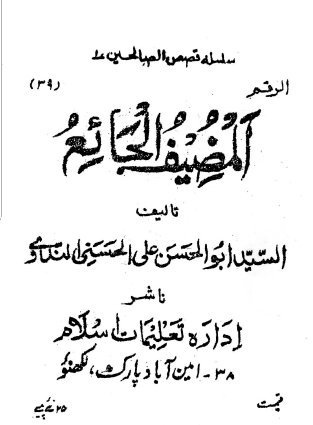 سلسله قصص الصالحين ۱
الرقم (۳۹)
اَلْمُضِيْفُ الْجَائِعُ
تاليف
السيّد ابو الحسن على الحسينى الندوى
ناشر
اِدَارَه تَعْلِيْمَاتِ اسْلَام
۳۸ - امين آباد پارک، لکھنؤ
قیمت ۲۵ نئے پیسے